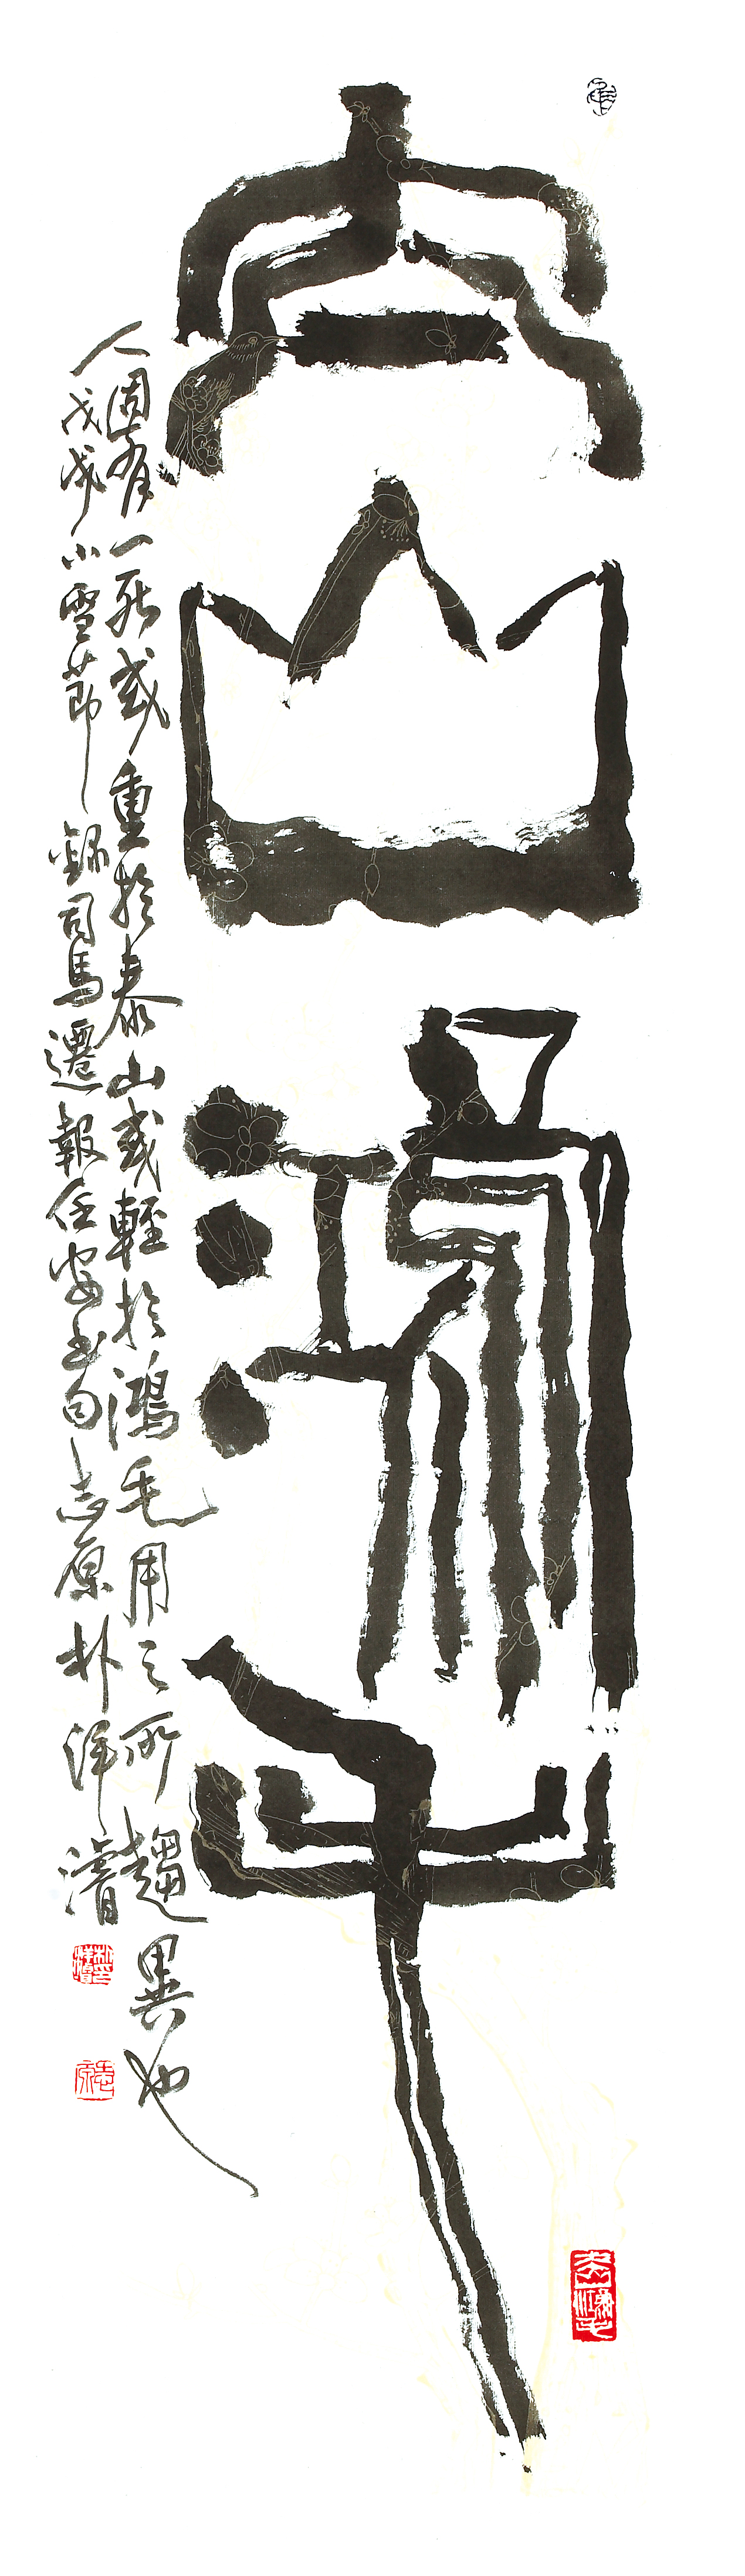 太山鴻毛
人固有一死或重於泰山或輕於鴻毛用之所趨異也
戊戌小雪節錄司馬遷報任安書句志原朴洋濬